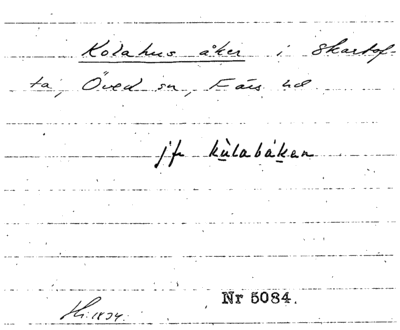 Kolahus åker i Skartof-
ta, Öved sn, Färs hd
jfr kùlabåken
Nr 5084.
1834.